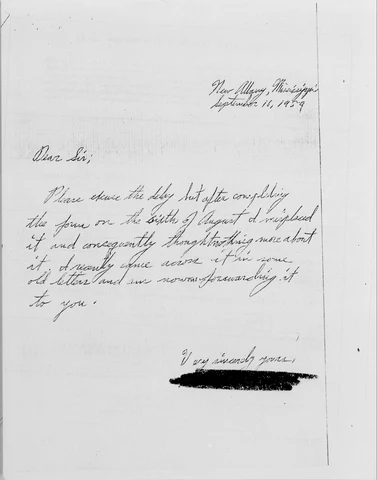 New Albany, Mississippi
September 16, 1959
Dear Sir;
Please excuse the delay but after completing
the form on the of August I misplaced
it and consequently thought nothing more about
it. I recently came across it in some
old letters and am now forwarding it
to you.
Very sincerely yours,